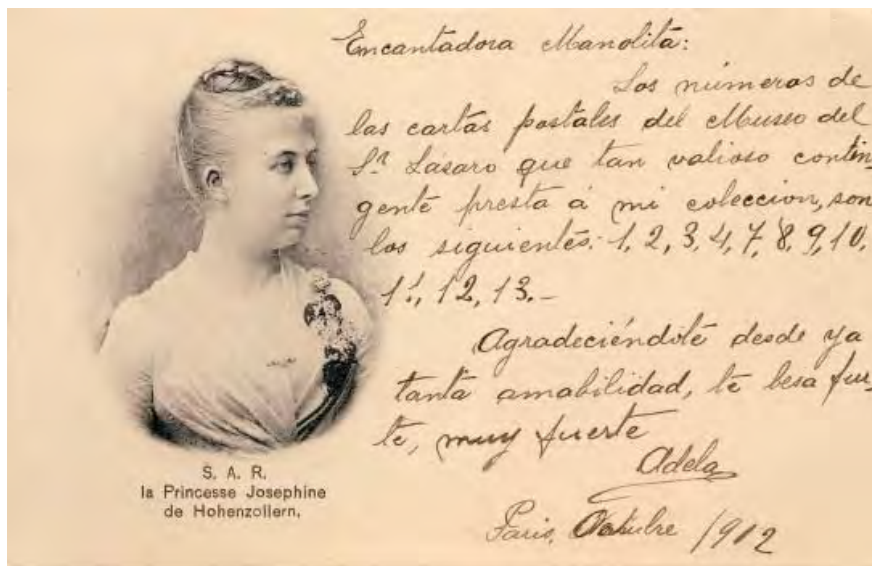 Encantadora Manolita:
Los números de
las cartas postales del Museo del
Sr. Lásaro que tan valioso contin-
gente presta á mi coleccion, son
los siguientes: 1, 2, 3, 4, 7, 8, 9, 10,
11, 12, 13.-
Agradeciéndote desde ya
tanta amabilidad, te besa fuer-
te, muy fuerte
Adela
Paris, Octubre /902
S. A. R.
la Princesse Josephine
de Hohenzollern.